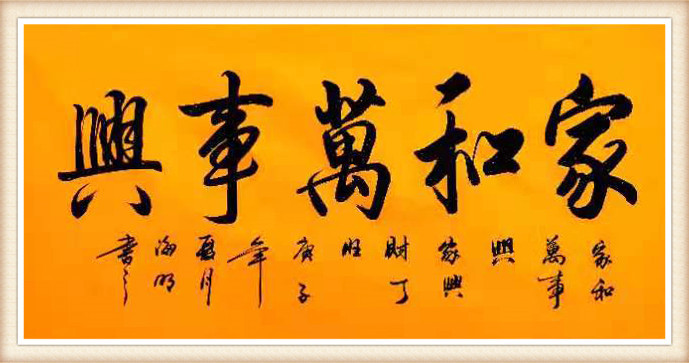 家和萬事興
家和
萬事
興
家興
財丁
旺
庚子
年
夏月
海明
書之